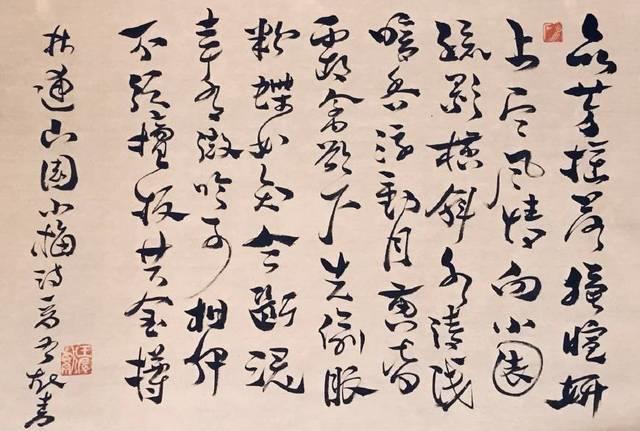 众芳摇落獨暄妍
占尽風情向小園
疏影横斜水清浅
暗香浮動月黄昏
霜禽欲下先偷眼
粉蝶如知合断魂
幸有微吟可相狎
不须檀板共金樽
林逋山园小梅诗